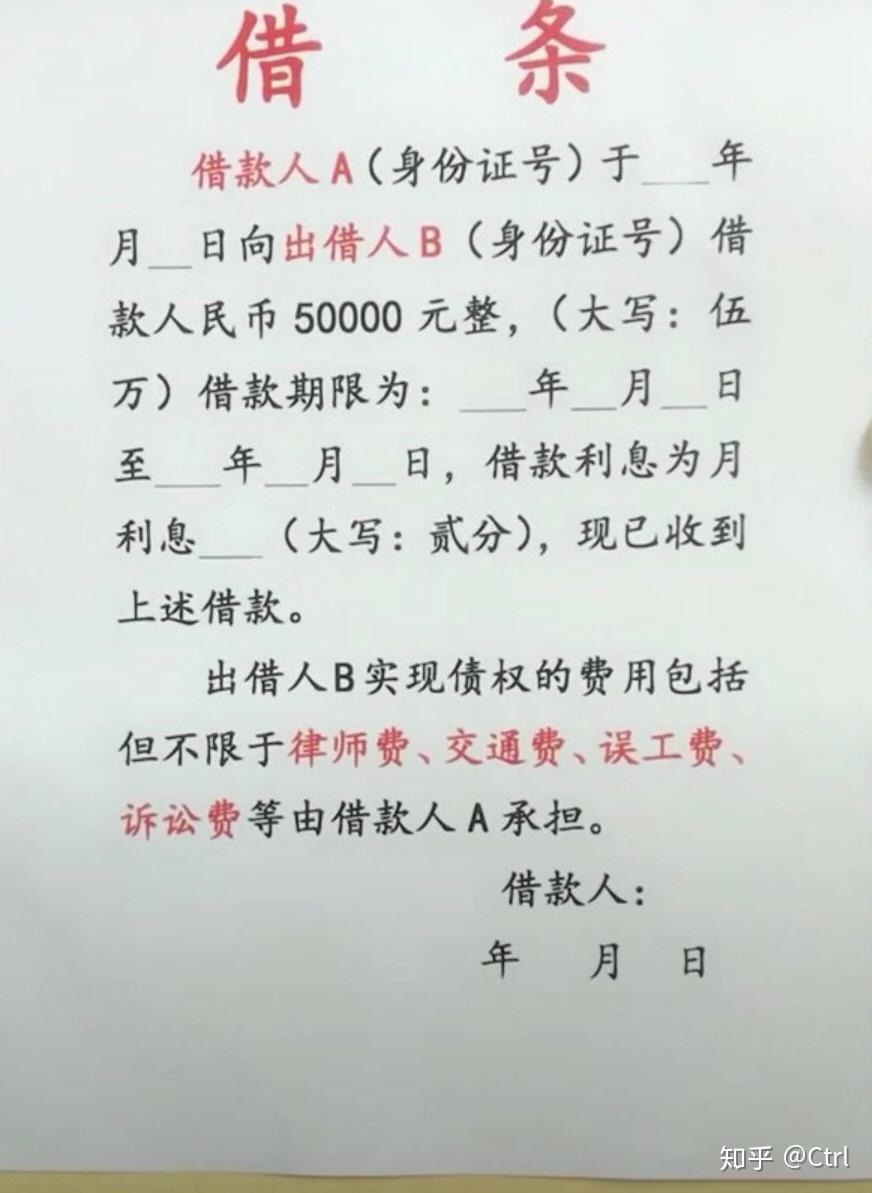 借 条
借款人A（身份证号）于___年
月__日向出借人B（身份证号）借
款人民币 50000 元整，（大写：伍
万）借款期限为：___年__月__日
至___年__月__日，借款利息为月
利息___（大写：贰分），现已收到
上述借款。
出借人B实现债权的费用包括
但不限于律师费、交通费、误工费、
诉讼费等由借款人 A 承担。
借款人：
年 月 日
知乎 @Ctrl